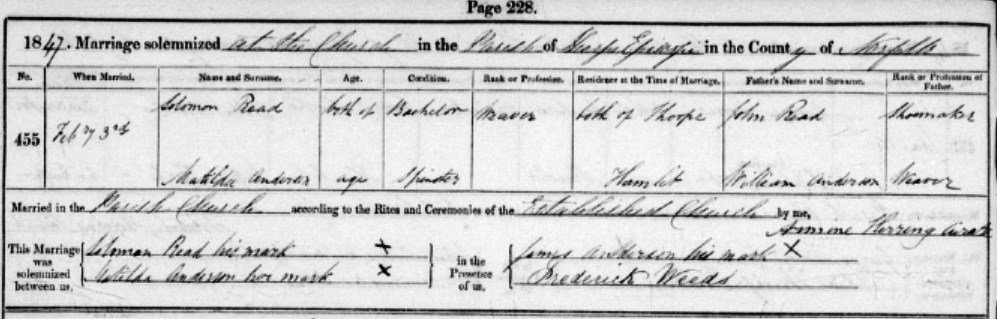 Page 228.
1847. Marriage solemnized at the Church in the Parish of in the County of Norfolk
No. When Married. Name and Surname. Age. Condition. Rank or Profession. Residence at the Time of Marriage. Father's Name and Surname. Rank or Profession of Father.
455 Feby 3rd Solomon Read both of Bachelor Weaver both of Thorpe John Read Shoemaker
Matilda Anderson age Spinster Hamlet William Anderson Weaver
Married in the Parish Church according to the Rites and Ceremonies of the Established Church by me,
Armine Herring Curate
This Marriage was solemnized between us, Solomon Read his mark X in the Presence of us, James Anderson his mark X
Matilda Anderson her mark X Frederick Weeds